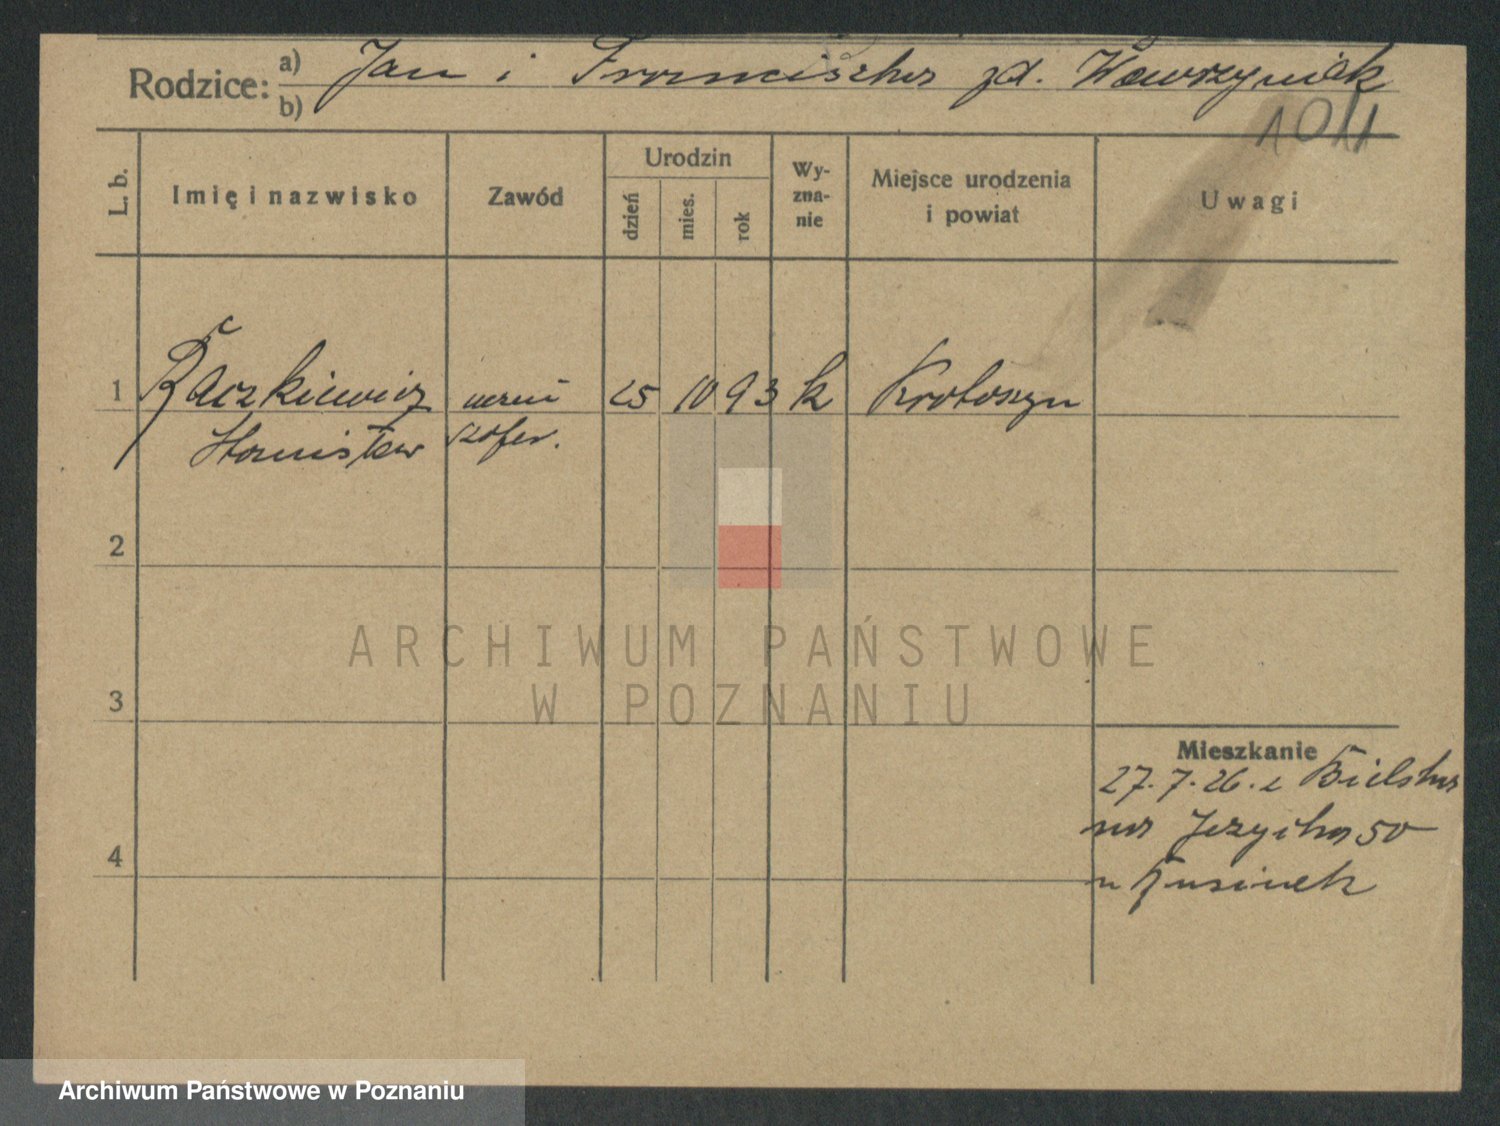 Rodzice: a) Jan i Franciszka zd. Wawrzyniak
b)
1011
L. b.
Imię i nazwisko
Zawód
Urodzin
dzień
mies.
rok
Wy-
zna-
nie
Miejsce urodzenia
i powiat
Uwagi
1 Raczkiewicz 25 10 93 k Krotoszyn
Stanisław szofer.
2
3
4
ARCHIWUM PAŃSTWOWE
W POZNANIU
Mieszkanie
27.7.26. z Bielska
na Jeżycka 50
Archiwum Państwowe w Poznaniu